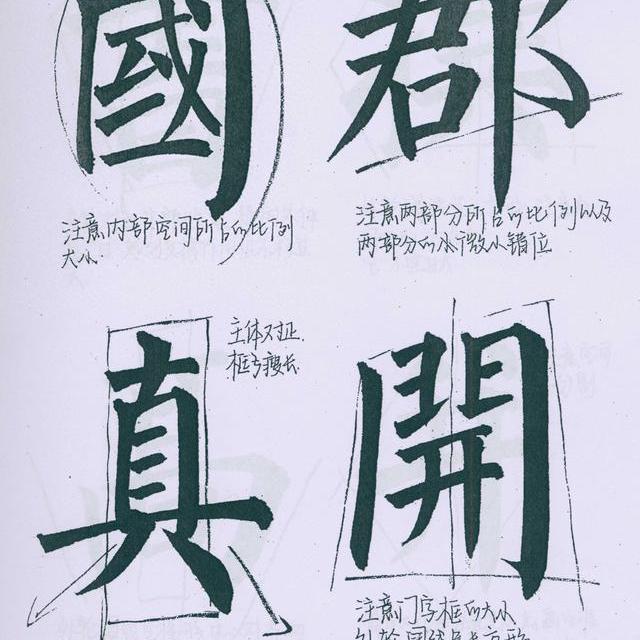 國
郡
注意内部空间所占的比例
大小
注意两部分所占的比例以及
两部分的水平微小错位
真
主体对正
框与瘦长
開
注意门字框的大小